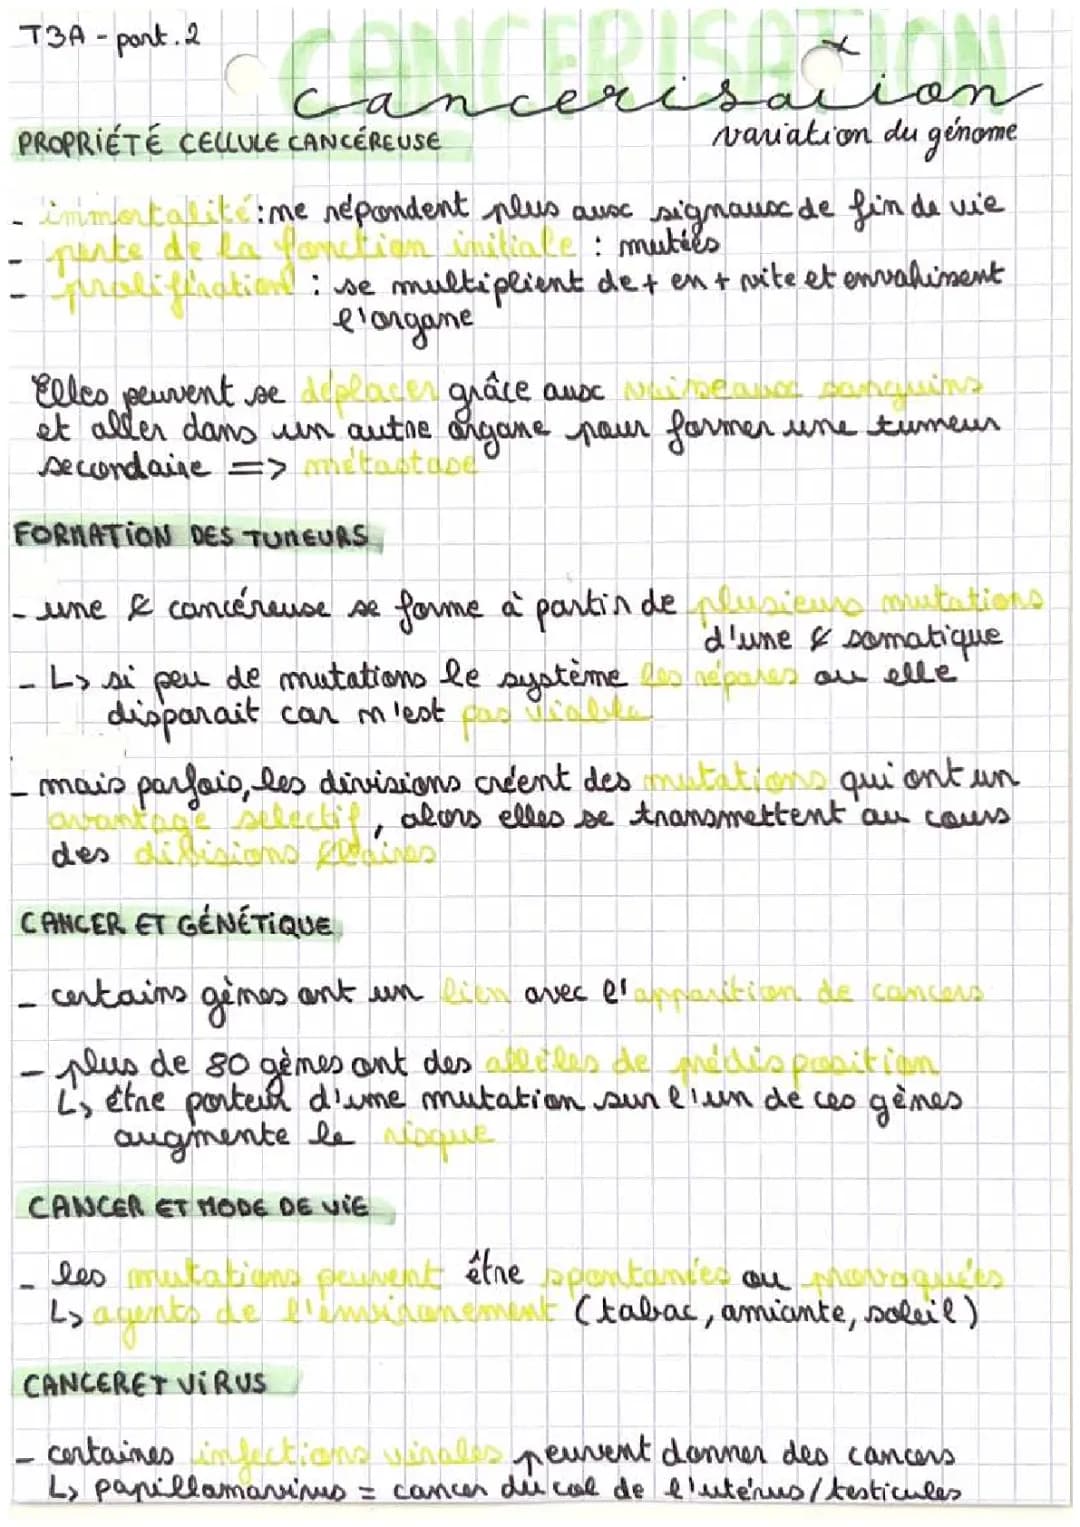 T3A - part.2
CANCERISATION
cancerisation
variation du génome
PROPRIÉTÉ CELLULE CANCÉREUSE
- immortalité : ne répondent plus aux signaux de fin de vie
- perte de la fonction initiale : mutées
- prolifération : se multiplient de + en + vite et envahissent
l'organe
Elles peuvent se déplacer grâce aux vaisseaux sanguins
et aller dans un autre organe pour former une tumeur
secondaire => métastase
FORMATION DES TUMEURS
- une ¢ cancéreuse se forme à partir de plusieurs mutations
d'une ¢ somatique
- ↳ si peu de mutations le système les répares ou elle
disparait car n'est pas viable
- mais parfois, les divisions créent des mutations qui ont un
avantage selectif, alors elles se transmettent au cours
des divisions ¢laires
CANCER ET GÉNÉTIQUE
- certains gènes ont un lien avec l'apparition de cancers
- plus de 80 gènes ont des allèles de prédisposition
↳ être porteur d'une mutation sur l'un de ces gènes
augmente le risque
CANCER ET MODE DE VIE
- les mutations peuvent être spontanées ou provoquées
↳ agents de l'environement (tabac, amiante, soleil)
CANCER ET VIRUS
- certaines infections virales peuvent donner des cancers
↳ papillomavirus = cancer du col de l'utérus/testicules